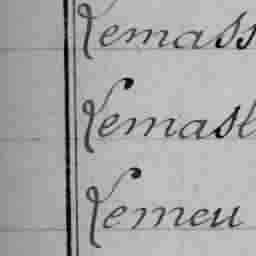 Lemass
Lemasl
Lemeu